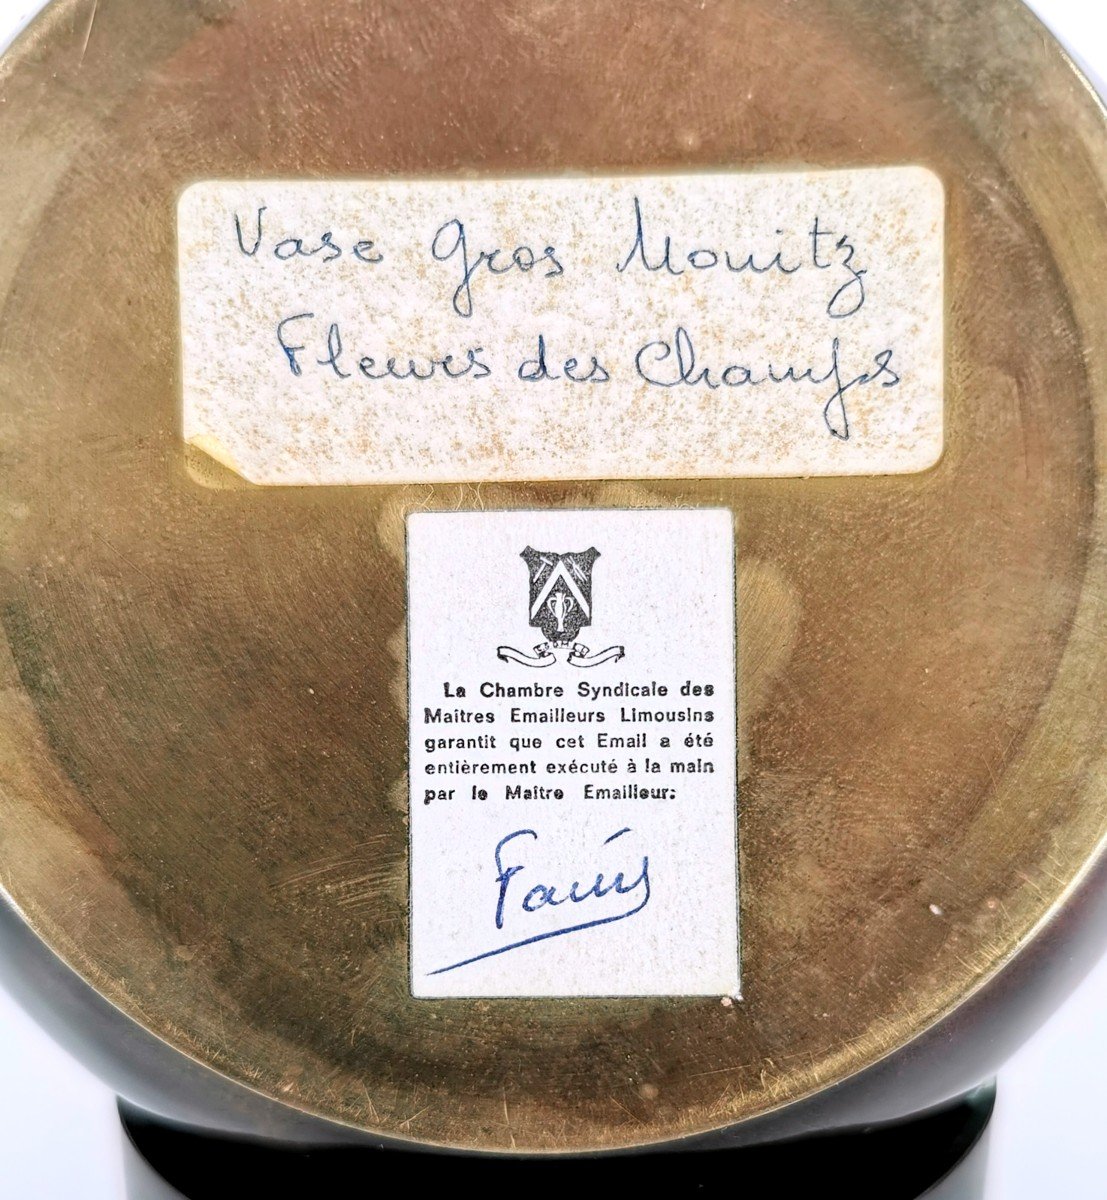 Vase Gros Mouitz
Fleurs des Champs
La Chambre Syndicale des
Maîtres Emailleurs Limousins
garantit que cet Email a été
entièrement exécuté à la main
par le Maître Emailleur: